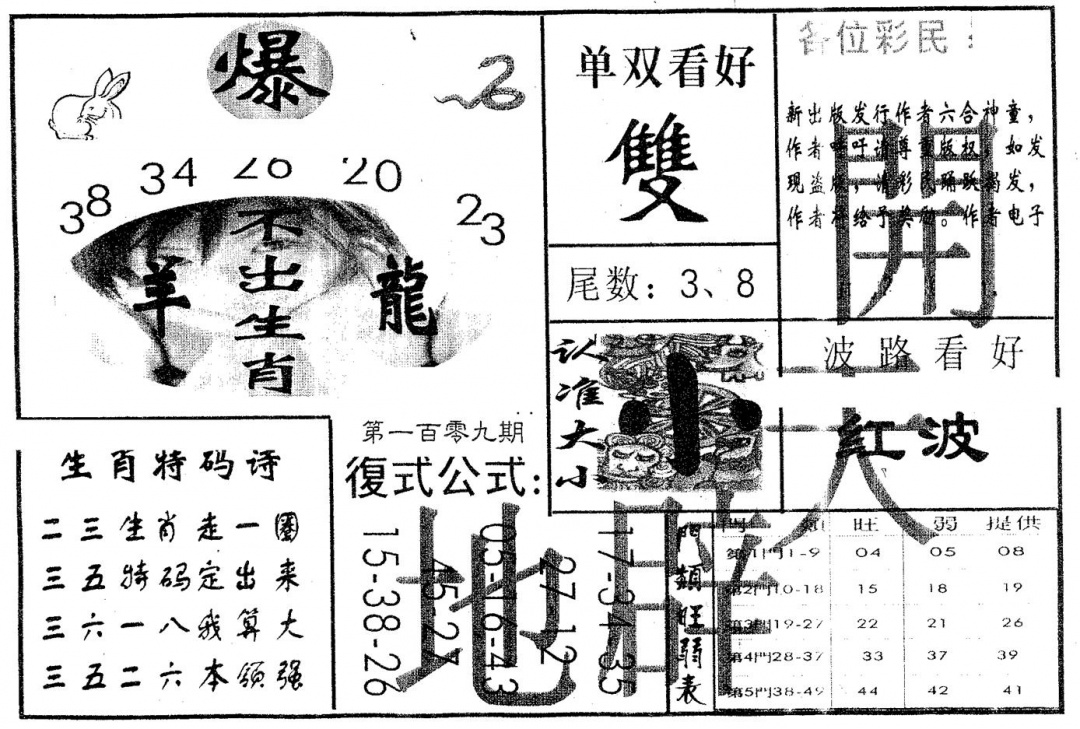 爆
38 34 26 20 23
羊
不出生肖
龍
单双看好
雙
尾数：3、8
各位彩民：
新出版发行作者六合神童，
作者呼吁请尊重版权，如发
现盗版，请彩民踊跃揭发，
作者将给予奖励。作者电子
開
波路看好
红波
认准大小
小
第一百零九期
復式公式:
15-38-26
45-27
05-16-43
27-12
17-34-35
生肖特码诗
二三生肖走一圈
三五特码定出来
三六一八我算大
三五二六本领强
門類旺弱表
門類 旺 弱 提供
第1門1-9 04 05 08
第2門10-18 15 18 19
第3門19-27 22 21 26
第4門28-37 33 37 39
第5門38-49 44 42 41
天
地